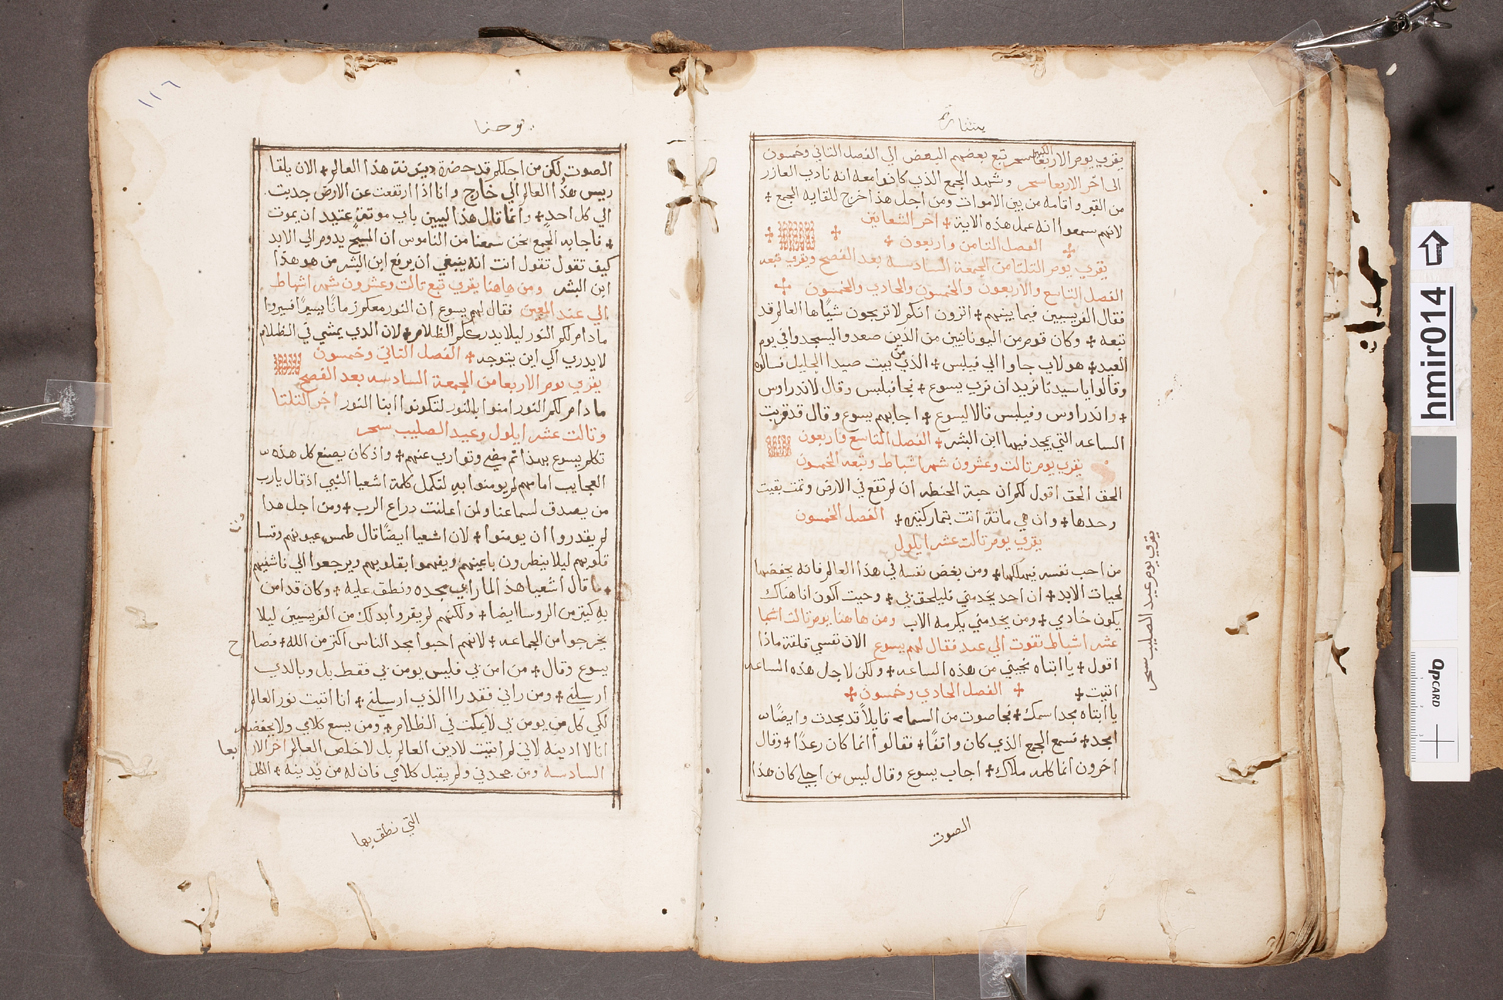 بشارة
يقرى يوم الاربعا الكبير سحر تبع بعضهم البعض الي الفصل الثاني وخمسون
الى اخر الاربعا سحر وشهد الجمع الذي كانوا معه انه نادى العازر
من القبر واقامه من بين الاموات ومن اجل هذا خرج للقايه الجمع
لانهم سمعوا انه عمل هذه الاية اخر الشعانين
الفصل الثامن واربعون
يقرى يوم الثلثا من الجمعة السادسه بعد الفصح ويقرى تبعه
الفصل التاسع والاربعون والخمسون والحادي والخمسون
فقال الفريسيين فيما بينهم اترون انكم لا تربحون شيًا ها العالم قد
تبعه وكان قوم من اليونانيين من الذين صعدوا ليسجدوا في يوم
العيد هولاي جاوا الي فيلبس الذي من بيت صيدا الجليل فسالوه
وقالوا يا سيدنا نريد ان نرى يسوع فجا فيلبس وقال لاندراوس
واندراوس وفيلبس قالا ليسوع اجابهم يسوع وقال قد قربت
الساعه التي يمجد فيها ابن البشر الفصل التاسع واربعون
يقرى يوم ثالث وعشرون شهر اشباط وتبعه الخمسون
الحق الحق اقول لكم ان حبة الحنطه ان لم تقع في الارض وتمت بقيت
وحدها وان هي ماتت اتت بثمار كثيره الفصل الخمسون
يقرى يوم ثالث عشر ايلول
من احب نفسه يهلكها ومن يغض نفسه في هذا العالم فانه يحفضها
لحيات الابد ان احد يخدمني فليلحق بي وحيث اكون انا هناك
يكون خادمي ومن يخدمني يكرمه الاب ومن هاهنا يوم ثالث
عشر اشباط تفوت الي عند فقال لهم يسوع الان نفسي قلقة ماذا
اقول يا ابتاه نجيني من هذه الساعه ولكن لاجل هذه الساعه
اتيت الفصل الحادي وخمسون
يا ابتاه مجد اسمك فجا صوت من السماء قايلًا قد مجدت وايضًا
امجد فسمع الجمع الذي كان واقفًا فقالوا انما كان رعدًا وقال
اخرون انما كلمه ملاك اجاب يسوع وقال ليس من اجلي كان هذا
الصوت
يقرى يوم عيد الصليب سحر
يوحنا
١١٦
الصوت لكن من اجلكم قد حضرة دينونة هذا العالم الان يلقا
رييس هذا العالم الي خارج وانا اذا ارتفعت عن الارض جدبت
الي كل احد وانما قال هذا ليبين باي موتةٍ عتيد ان يموت
فاجابه الجمع نحن سمعنا من الناموس ان المسيح يدوم الي الابد
كيف تقول انت انه ينبغي ان يرفع ابن البشر من هو هذا
ابن البشر ومن هاهنا يقرى تبع ثالث وعشرون شهر اشباط
الي عند المعين فقال لهم يسوع ان النور معكم زمانًا يسيرًا فسيروا
ما دام لكم النور ليلا يدرككم الظلام لان الذي يمشي في الظلام
لا يدري الي اين يتوجه الفصل الثاني وخمسون
يقرى يوم الاربعا من الجمعة السادسه بعد الفصح
ما دام لكم النور امنوا بالنور لتكونوا ابنا النور اخر الثلثا
وثالث عشر ايلول وعيد الصليب سحر
تكلم يسوع بهذا ثم مضى وتوارى عنهم واذ كان يصنع كل هذه
العجايب امامهم لم يومنوا به لتكمل كلمة اشعيا النبي اذ قال يا رب
من يصدق لسماعنا ولمن اعلنت دراع الرب ومن اجل هذا
لم يقدروا ان يومنوا لان اشعيا ايضًا قال طمس عيونهم وقسا
قلوبهم ليلا ينظرون باعينهم ويفهموا بقلوبهم ويرجعوا الي فاشفيهم
ما قال اشعيا هذا لما راي مجده ونطق عليه وكان قد امن
به كثير من الروسا ايضا ولكنهم لم يقروا بدلك من الفريسيين ليلا
يخرجوا من الجماعه لانهم احبوا مجد الناس اكثر من الله فصا
يسوع وقال من امن بي فليس يومن بي فقط بل وبالدي
ارسلني ومن راني فقد راا الذي ارسلني انا اتيت نور العالم
لكي كل من يومن بي لا يمكث في الظلام ومن يسمع كلامي ولا يحفضه
انا لا ادينه لاني لم اتيت لادين العالم بل لاخلص العالم اخر الاربعا
السادسه ومن جحدني ولم يقبل كلامي فان له من يدينه
التي نطق بها
hmir014
QP CARD